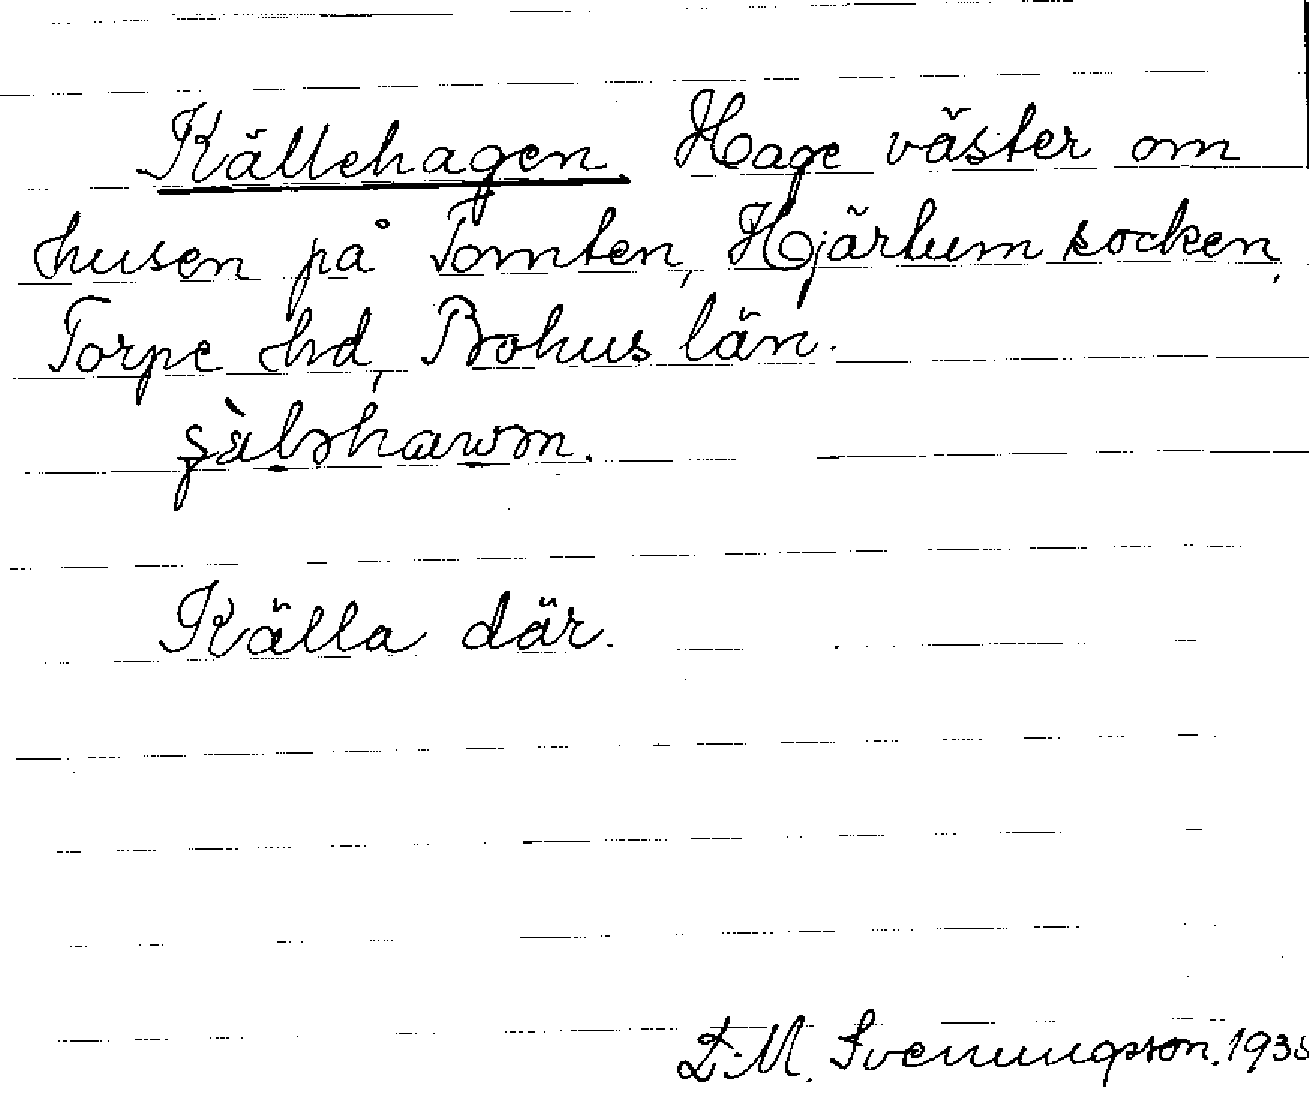 Källehagen. Hage väster om
husen på Tomten, Hjärtum socken,
Torpe hd, Bohus län.
Källa där.
D.M. Svenningson. 193